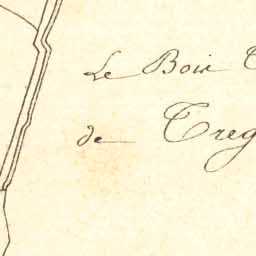 Le Bois
de Treg